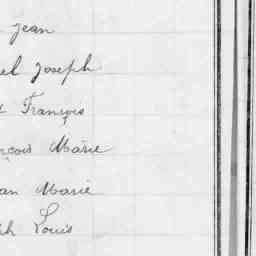 Jean
el Joseph
François
çois Marie
an Marie
ph Louis